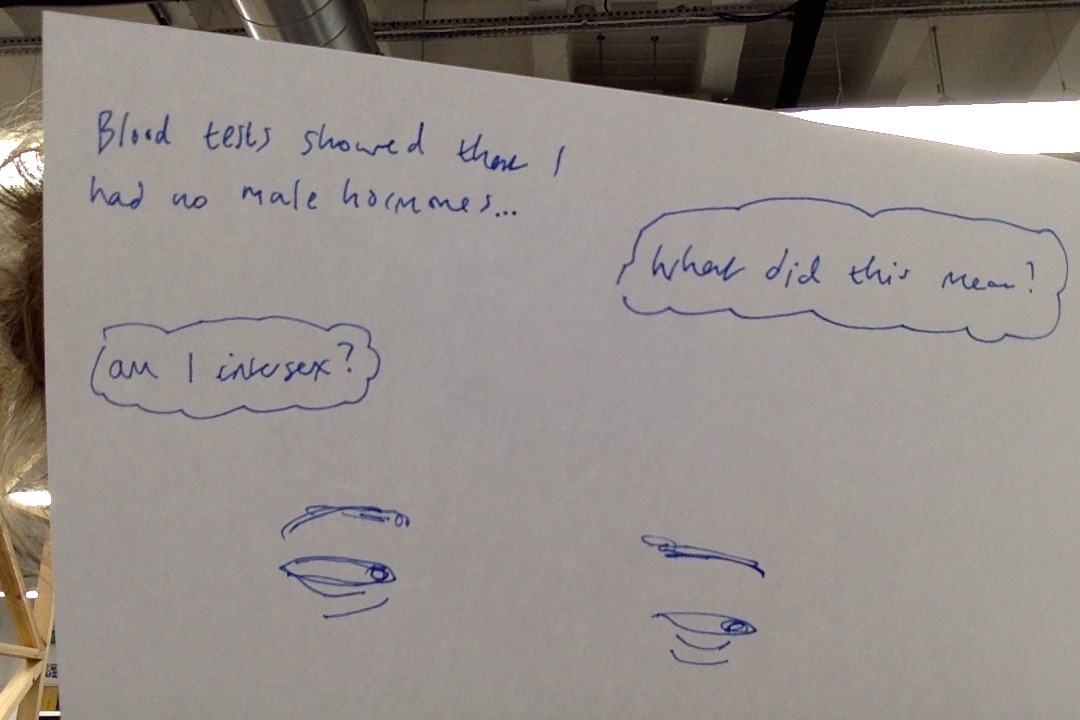 Blood tests showed that I
had no male hormones...
What did this mean?
am I intersex?